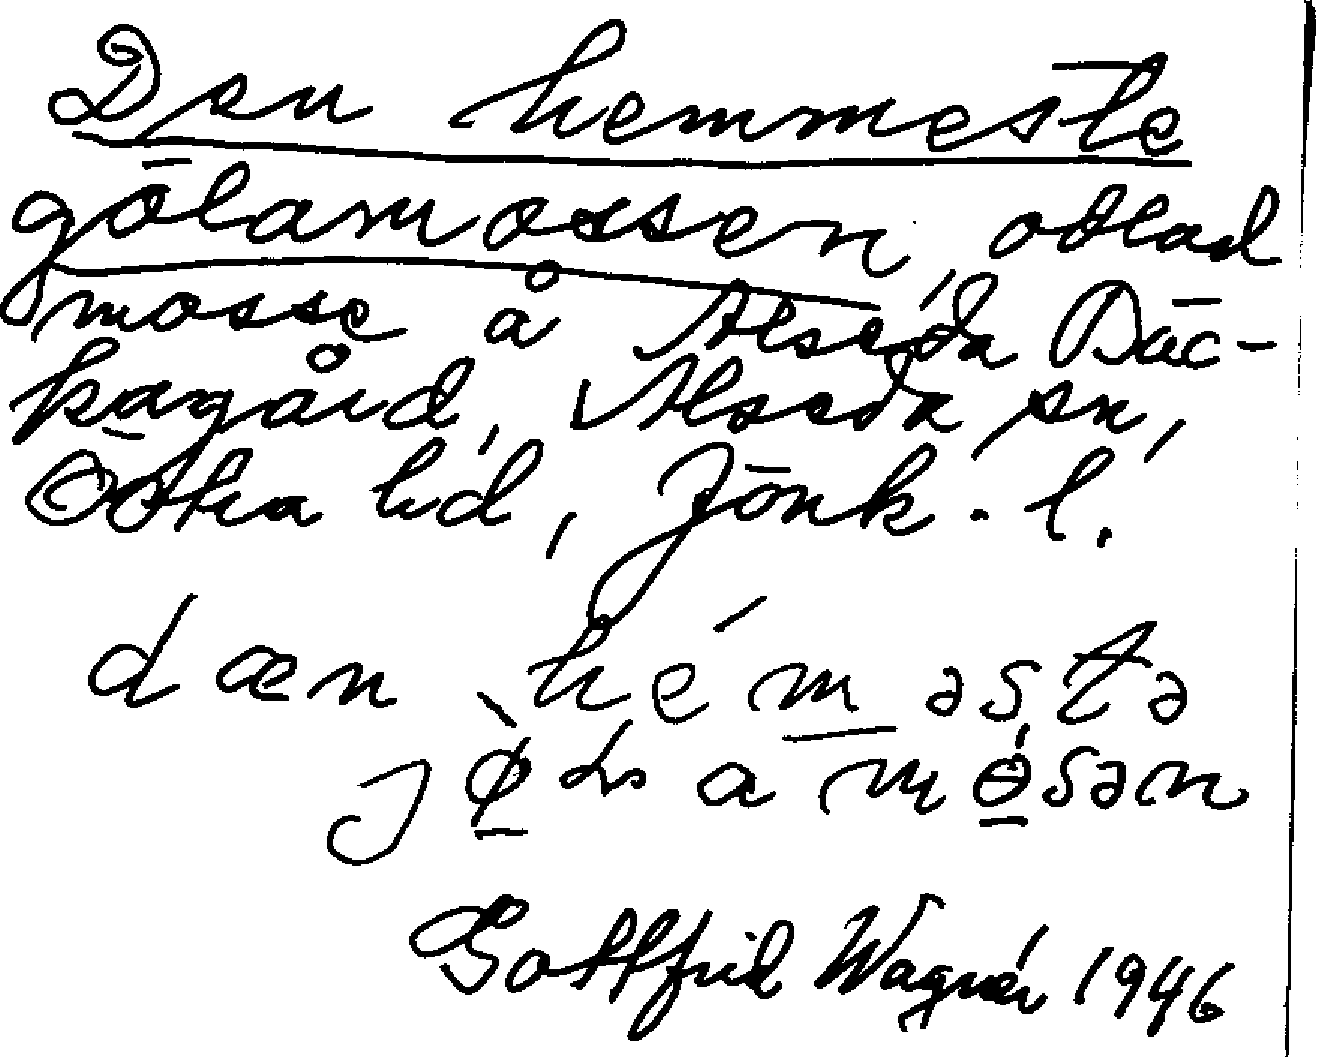 Den hemmeste
gölamossen, odlad
mosse å Alseda Bäc-
kagård, Alseda sn,
Östra hd, Jönk. l.
dæn hémǝstǝ
a mɵ́sǝn
Gottfrid Wagnér 1946